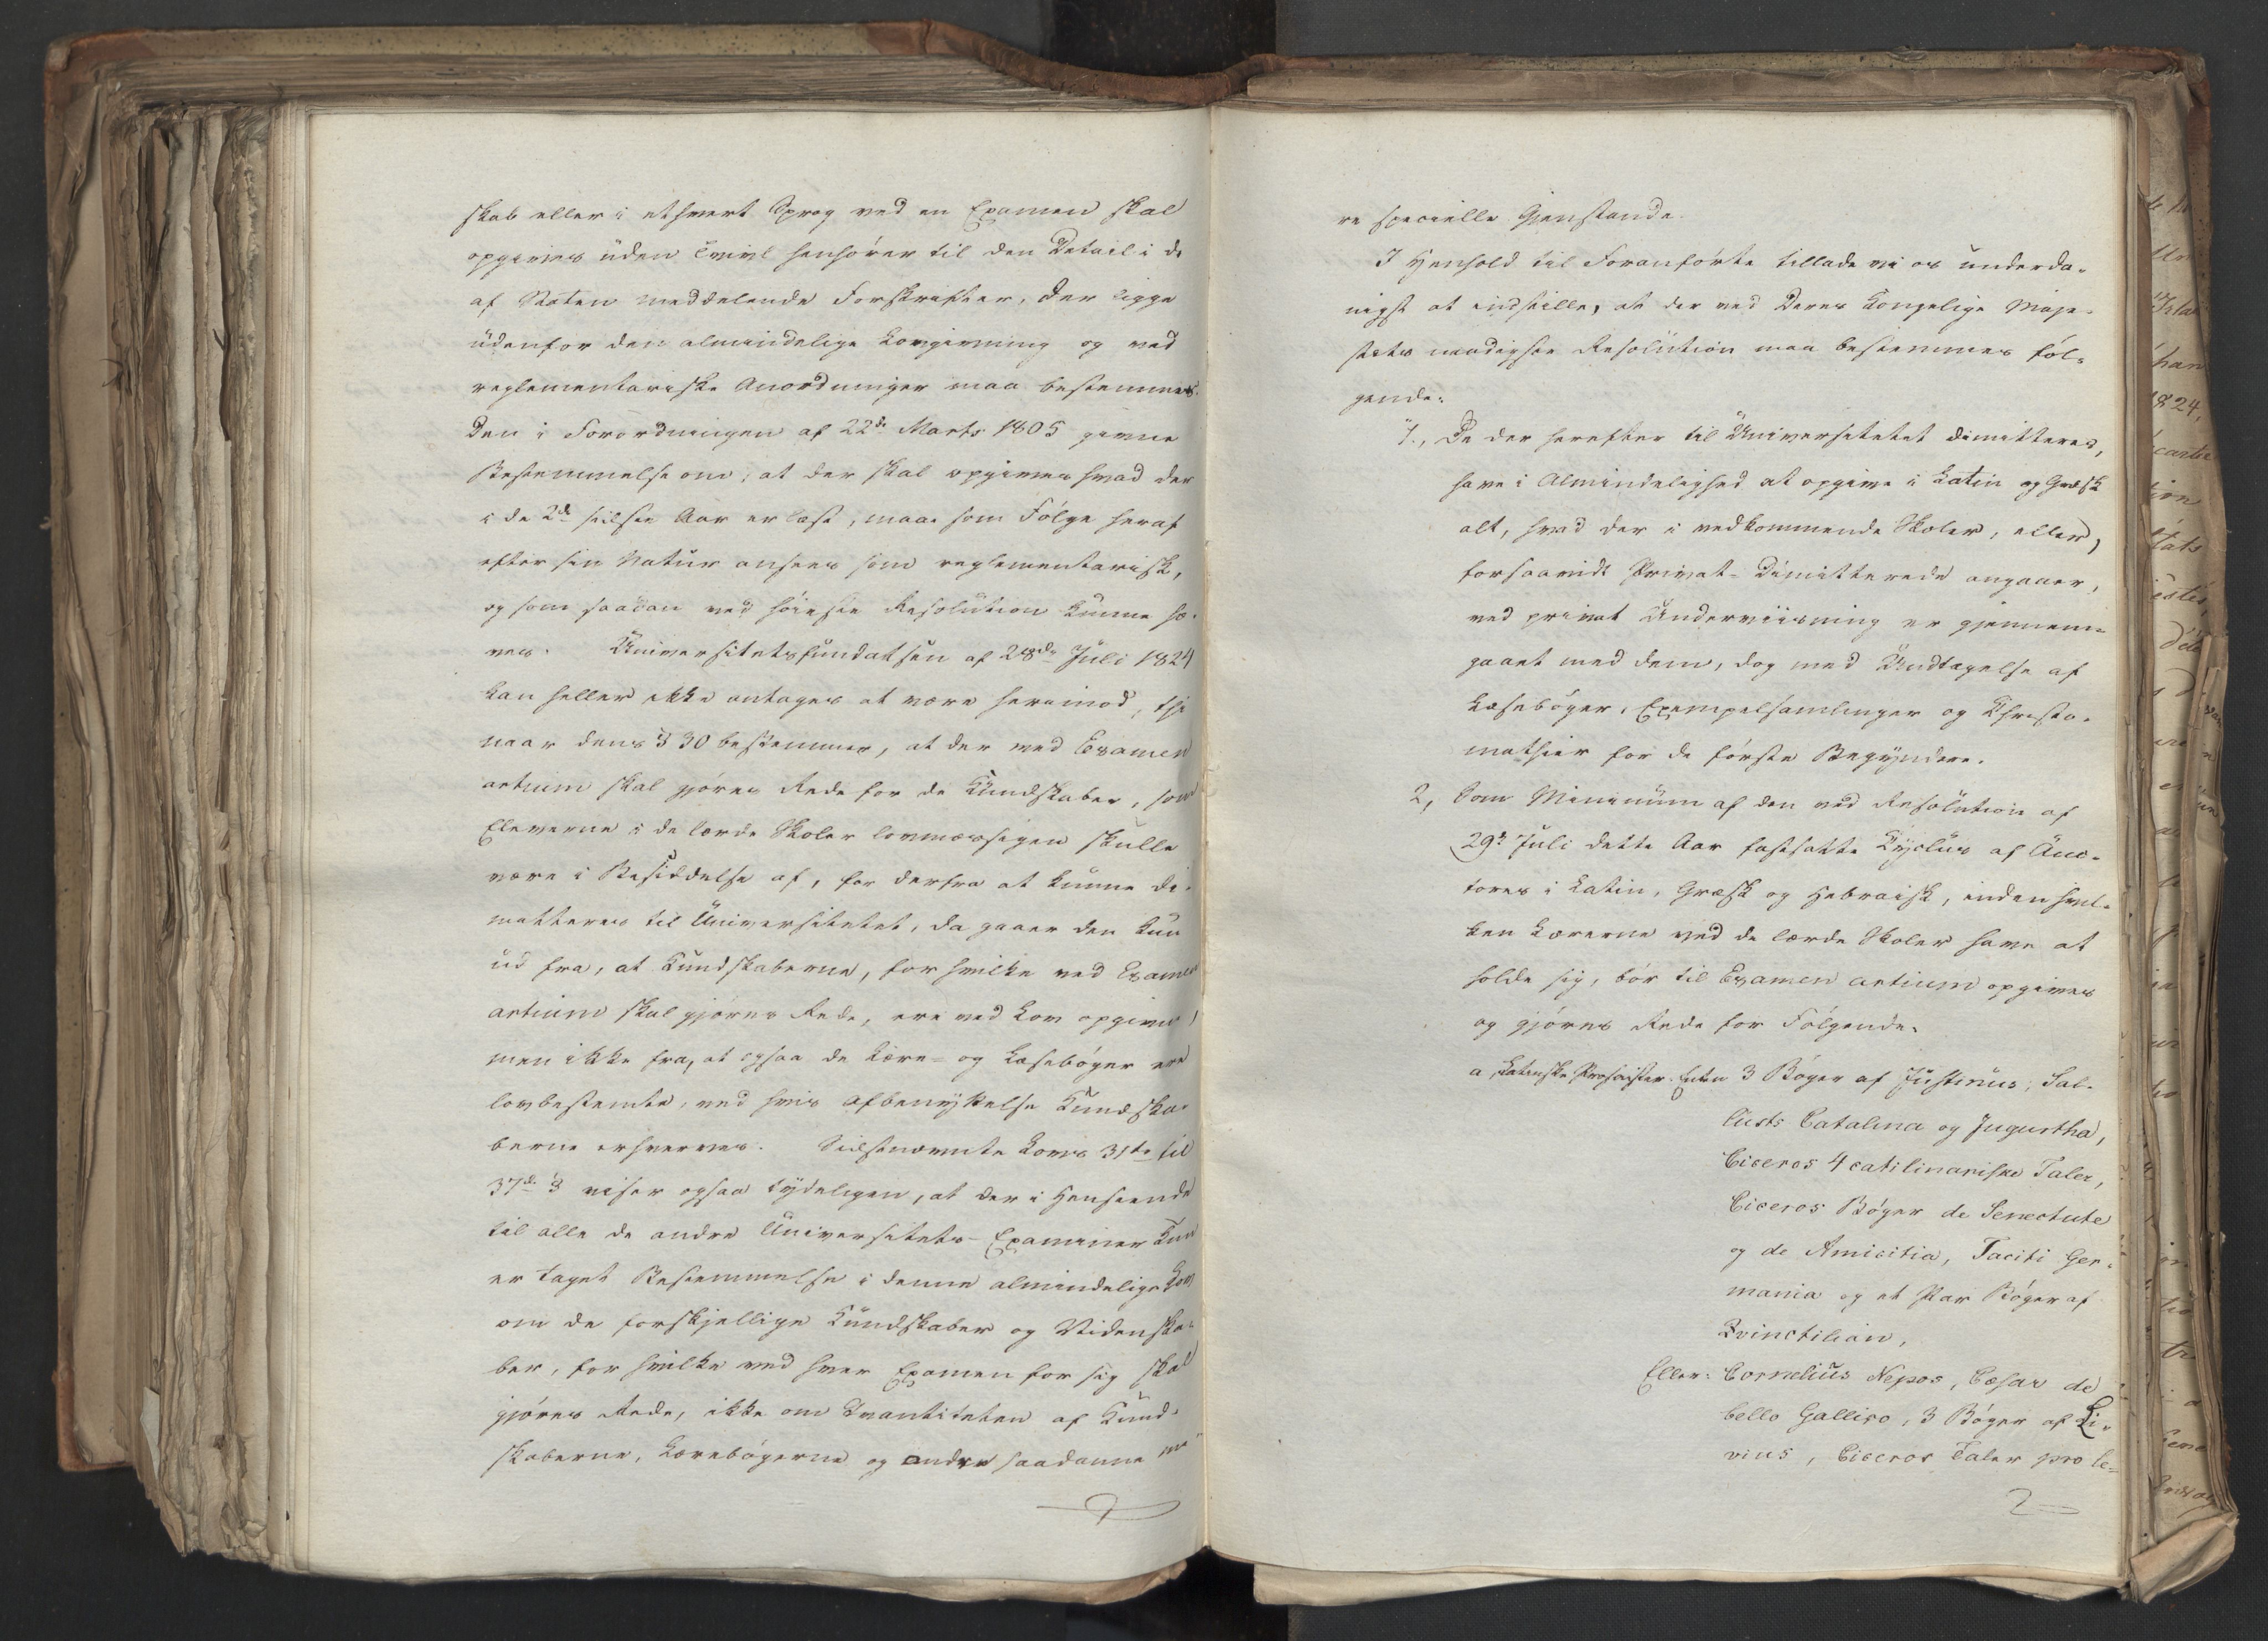 skab eller i ethvert Sprog ved en Examen skal
opgives uden Tvivl henhører til den Detail i de
af Staten meddelende Forskrifter, der ligge
udenfor den almindelige Lovgivning og ved
reglementariske Anordninger maa bestemmes.
Den i Forordningen af 22de Marts 1805 givne
Bestemmelse om, at der skal opgives hvad der
i de 2de sidste Aar er læst, maa som Følge heraf
efter sin Natur ansees som reglementarisk,
og som saadan ved høieste Resolution kunne hæ-
ves. Universitetsfundatsen af 28de Juli 1824
kan heller ikke antages at være herimod, thi
naar dens § 30 bestemmer, at der ved Examen
artium skal gjøres Rede for de Kundskaber, som
Eleverne i de lærde Skoler lovmæssigen skulle
være i Besiddelse af, for derfra at kunne di-
mitteres til Universitetet, da gaaer den kun
ud fra, at Kundskaberne, for hvilke ved Examen
artium skal gjøres Rede, ere ved Lov opgivne,
men ikke fra, at ogsaa de Lære- og Læsebøger ere
lovbestemte, ved hvis Afbenyttelse Kundska-
berne erhverves. Sidstnævnte Lovs 31te til
37de § viser ogsaa tydeligen, at der i Henseende
til alle de andre Universitets-Examiner kun
er taget Bestemmelse i denne almindelige Lov
om de forskjellige Kundskaber og Videnska-
ber, for hvilke ved hver Examen for sig skal
gjøres Rede, ikke om Qvantiteten af Kund-
skaberne, Lærebøgerne og andre saadanne me-
re specielle Gjenstande.
I Henhold til Foranførte tillade vi os underda-
nigst at indstille, at der ved Deres Kongelige Maje-
stæts naadigste Resolution maa bestemmes føl-
gende:
1., De der herefter til Universitetet dimitteres,
have i Almindelighed at opgive i Latin og Græsk
alt, hvad der i vedkommende Skoler, eller,
forsaavidt Privat-Dimitterede angaaer,
ved privat Underviisning er gjennem-
gaaet med dem, dog med Undtagelse af
Læsebøger, Exempelsamlinger og Chresto-
mathier for de første Begyndere.
2, Som Minimum af den ved Resolution af
29de Juli dette Aar fastsatte Cyclus af Auc-
tores i Latin, Græsk og Hebraisk, inden hvil-
ken Lærerne ved de lærde Skoler have at
holde sig, bør til Examen artium opgives
og gjøres Rede for Følgende:
a, Latinske Prosaister. Enten 3 Bøger af Justinus, Sal-
lusts Catalina og Jugurtha,
Ciceros 4 catilinariske Taler,
Ciceros Bøger de Senectute
og de Amicitia, Taciti Ger-
mania og et Par Bøger af
Qvinctilian,
Eller: Cornelius Nepos, Cæsar de
bello Gallico, 3 Bøger af Li-
vius, Ciceros Taler pro le-